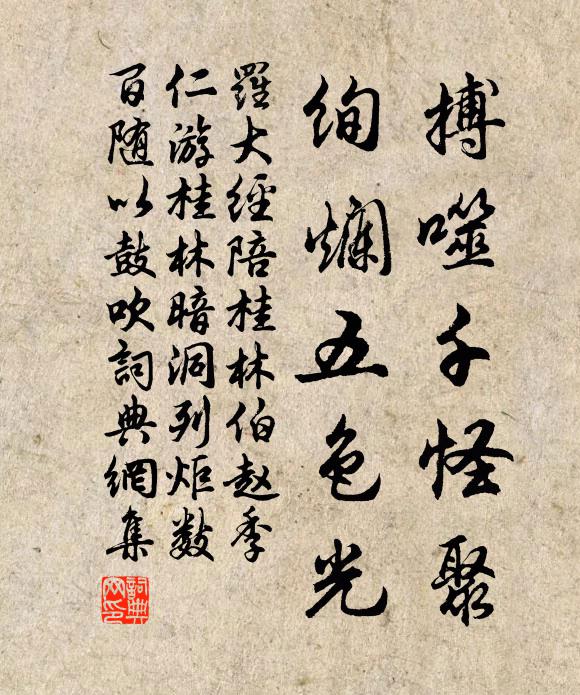 搏噬千怪聚
绚爛五色光
羅大經陪桂林伯赵季
仁游桂林暗洞列炬数
百随以鼓吹詞典網集
詞典網印